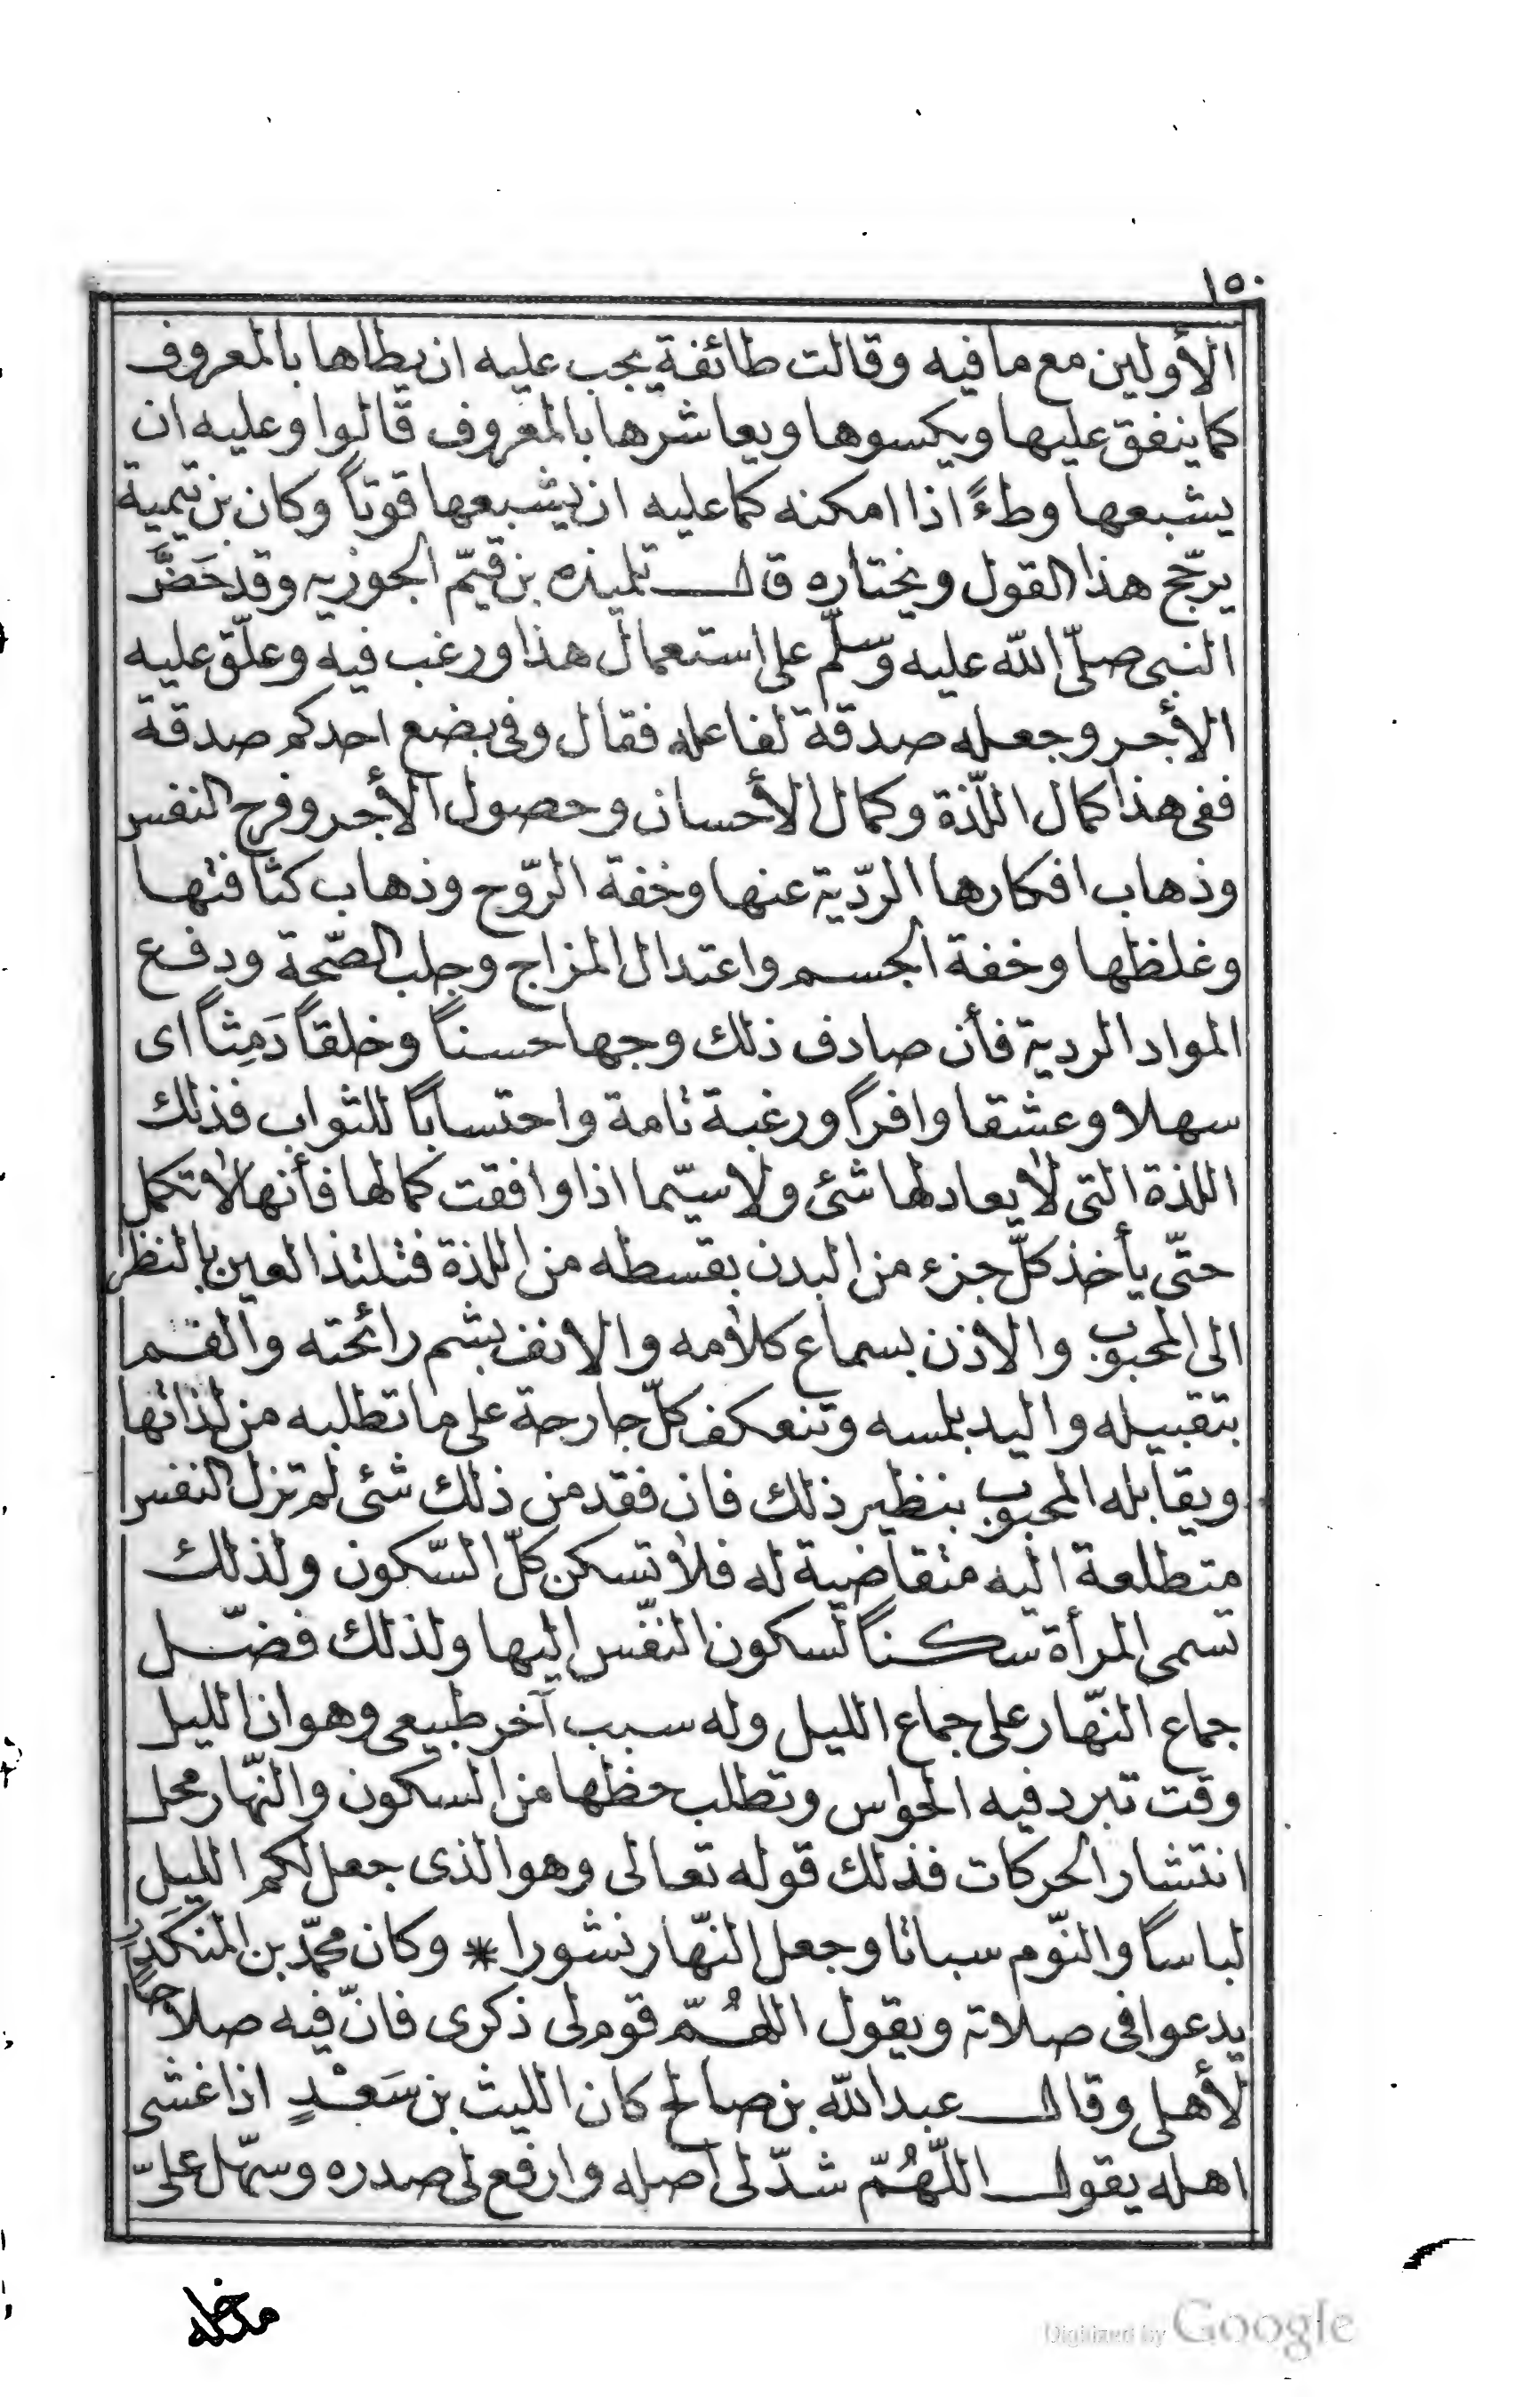 ١٥٠
الأولين مع ما فيه وقالت طائفة يجب عليه ان يطاها بالمعروف
كما ينفق عليها ويكسوها ويعاشرها بالمعروف قالوا وعليه ان
يشبعها وطءً اذا امكنه كما عليه ان يشبعها قوتاً وكان بن تيمية
يرجّح هذا القول ويختاره قال تلميذه بن قيّم الجوزيه وقد حَضَّ
النبى صلّى الله عليه وسلّم على استعمال هذا ورغب فيه وعلّق عليه
الأجر وجعله صدقة لفاعله فقال وفى بضع احدكم صدقة
ففى هذا كمال اللّذة وكمال الأحسان وحصول الأجر وفرح النفس
وذهاب افكارها الردّية عنها وخفة الرّوح وذهاب كثافتها
وغلظها وخفة الجسم واعتدال المزاج وجلب الصّحة ودفع
المواد الردية فأن صادف ذلك وجها حسناً وخلقاً دَمِثاً اى
سهلا وعشقا وافراً ورغبة تامة واحتساباً للثواب فذلك
اللذة التى لا يعادلها شئ ولا سيّما اذا وافقت كمالها فأنها لا تكمل
حتّى يأخذ كلّ جزء من البدن بقسطه من اللذة فتلتذ العين بالنظر
الى المحبوب والاذن بسماع كلامه والانف بشم رائحته والفما
بتقبيله واليد بلمسه وتنعكف كلّ جارحة على ما تطلبه من لذاتها
ويقابله المحبوب بنظير ذلك فان فقد من ذلك شئ لم تزل النفس
متطلعة اليه متقاضية له فلا تسكن كلّ السّكون ولذلك
تسمى المرأة سكناً لسكون النفّس اليها ولذلك فضّل
جماع النّهار على جماع الليل وله سبب آخر طبيعى وهو ان الليل
وقت تبرد فيه الحواس وتطلب حظها من السكون والنّهار محل
انتشار الحركات فذلك قوله تعالى وهو الذى جعل لكم الليل
لباساً والنّوم سباتا وجعل النّهار نشورا * وكان محمّد بن المنكَدِر
يدعوا فى صلاته ويقول اللهُمّ قوم لى ذكرى فانّ فيه صلاحاً
لأهلى وقال عبدالله بن صالح كان الليث بن سَعْدٍ اذا غشى
اهله يقول اللّهُمّ شدّ لى اصله وارفع لى صدره وسهّل علىّ
مدخله
Digitized by Google